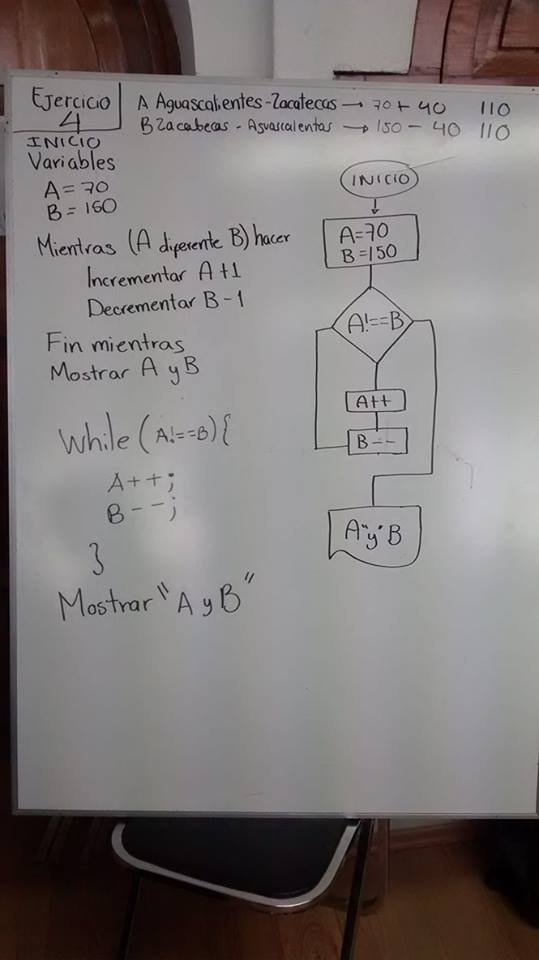 Ejercicio
4
A Aguascalientes-Zacatecas → 70 + 40 110
B Zacatecas - Aguascalientas → 150 - 40 110
INICIO
Variables
A = 70
B = 150
Mientras (A diferente B) hacer
Incrementar A+1
Decrementar B-1
Fin mientras
Mostrar A y B
While (A!==B){
A++;
B--;
}
Mostrar "A y B"
INICIO
A=70
B=150
A!==B
A++
B--
A"y"B